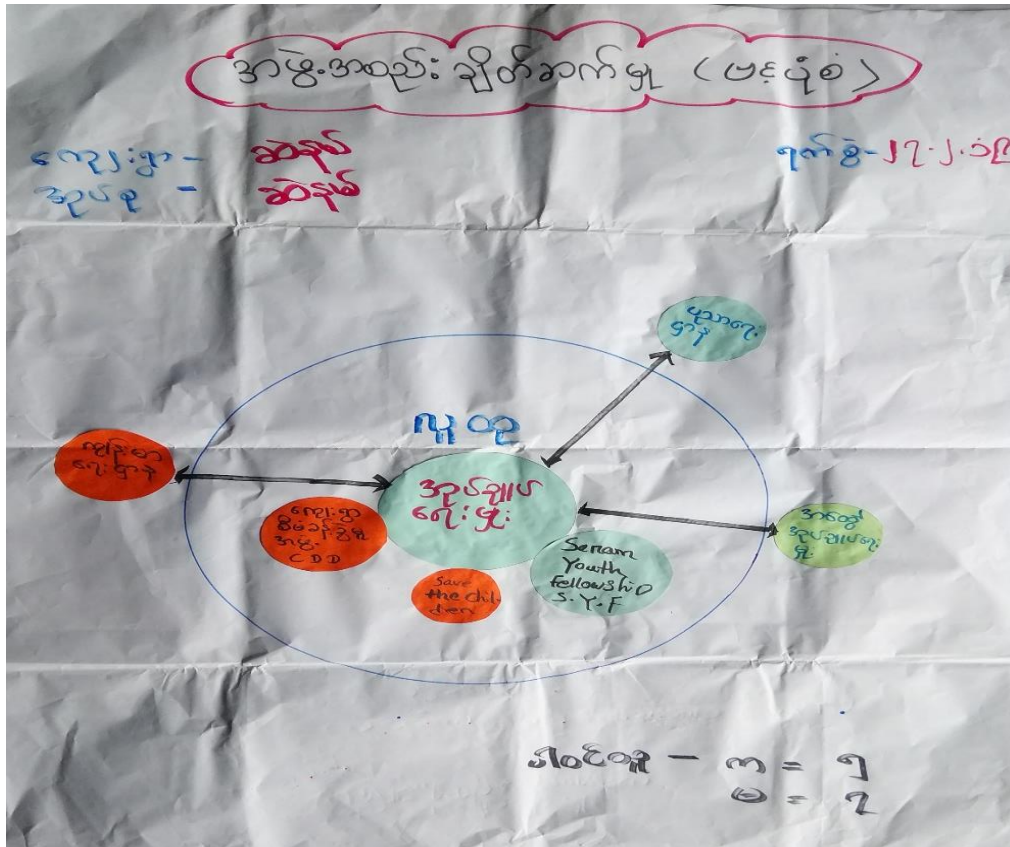 အဖွဲ့အစည်း ချိတ်ဆက်မှု (ဗင့်ပုံစံ)
ကျေးရွာ - ဆဲနမ်
အုပ်စု - ဆဲနမ်
ရက်စွဲ - ၂၇.၂.၁၉
ပညာရေး
ဌာန
လူထု
ကျန်းမာ
ရေးဌာန
အုပ်ချုပ်
ရေးမှူး
ကျေးရွာ
စီမံခန့်ခွဲမှု
အဖွဲ့
CDD
Save
the chil
dren
Senam
Youth
Fellowship
S.Y.F
အထွေထွေ
အုပ်ချုပ်ရေး
မှူး
ပါဝင်သူ - က = ၅
မ = ၇